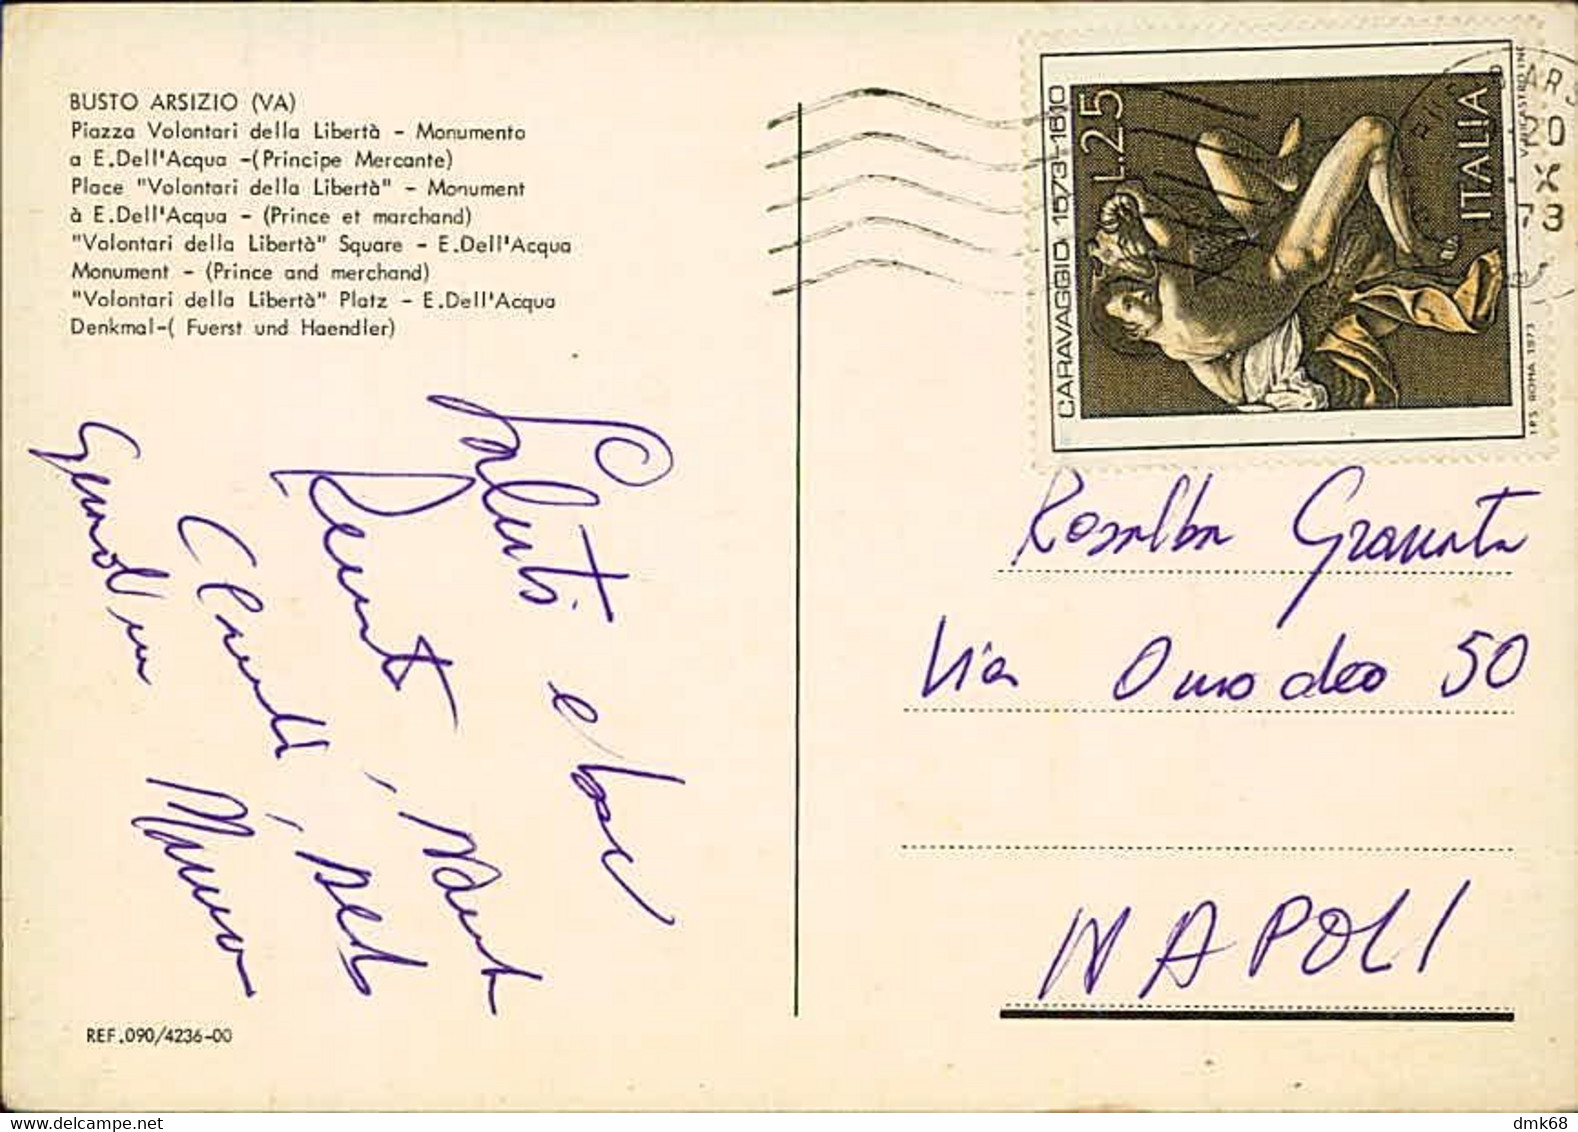 BUSTO ARSIZIO (VA)
Piazza Volontari della Libertà - Monumento
a E.Dell'Acqua -(Principe Mercante)
Place "Volontari della Libertà" - Monument
à E.Dell'Acqua - (Prince et marchand)
"Volontari della Libertà" Square - E.Dell'Acqua
Monument - (Prince and merchand)
"Volontari della Libertà" Platz - E.Dell'Acqua
Denkmal-( Fuerst und Haendler)
Saluti e baci
REF.090/4236-00
CARAVAGGIO 1573-1610
L.25
ITALIA
I.P.S. ROMA 1973
20
X
73
Rosalba Granata
Via Omodeo 50
NAPOLI
dmk68